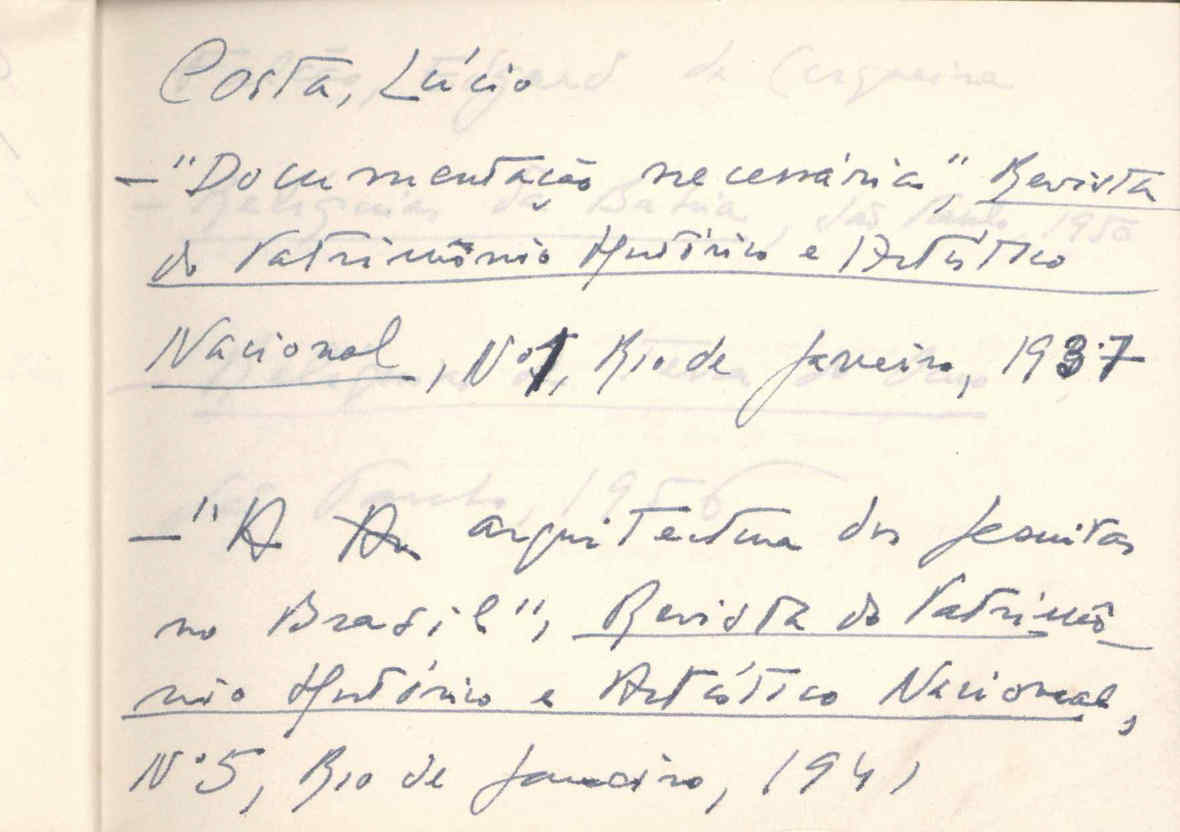 Costa, Lúcio
— "Documentação necessária", Revista
do Patrimônio Histórico e Artístico
Nacional, Nº 1, Rio de Janeiro, 1937
— "A arquitectura dos Jesuitas
no Brasil", Revista do Patrimô-
nio Histórico e Artístico Nacional,
Nº 5, Rio de Janeiro, 1941